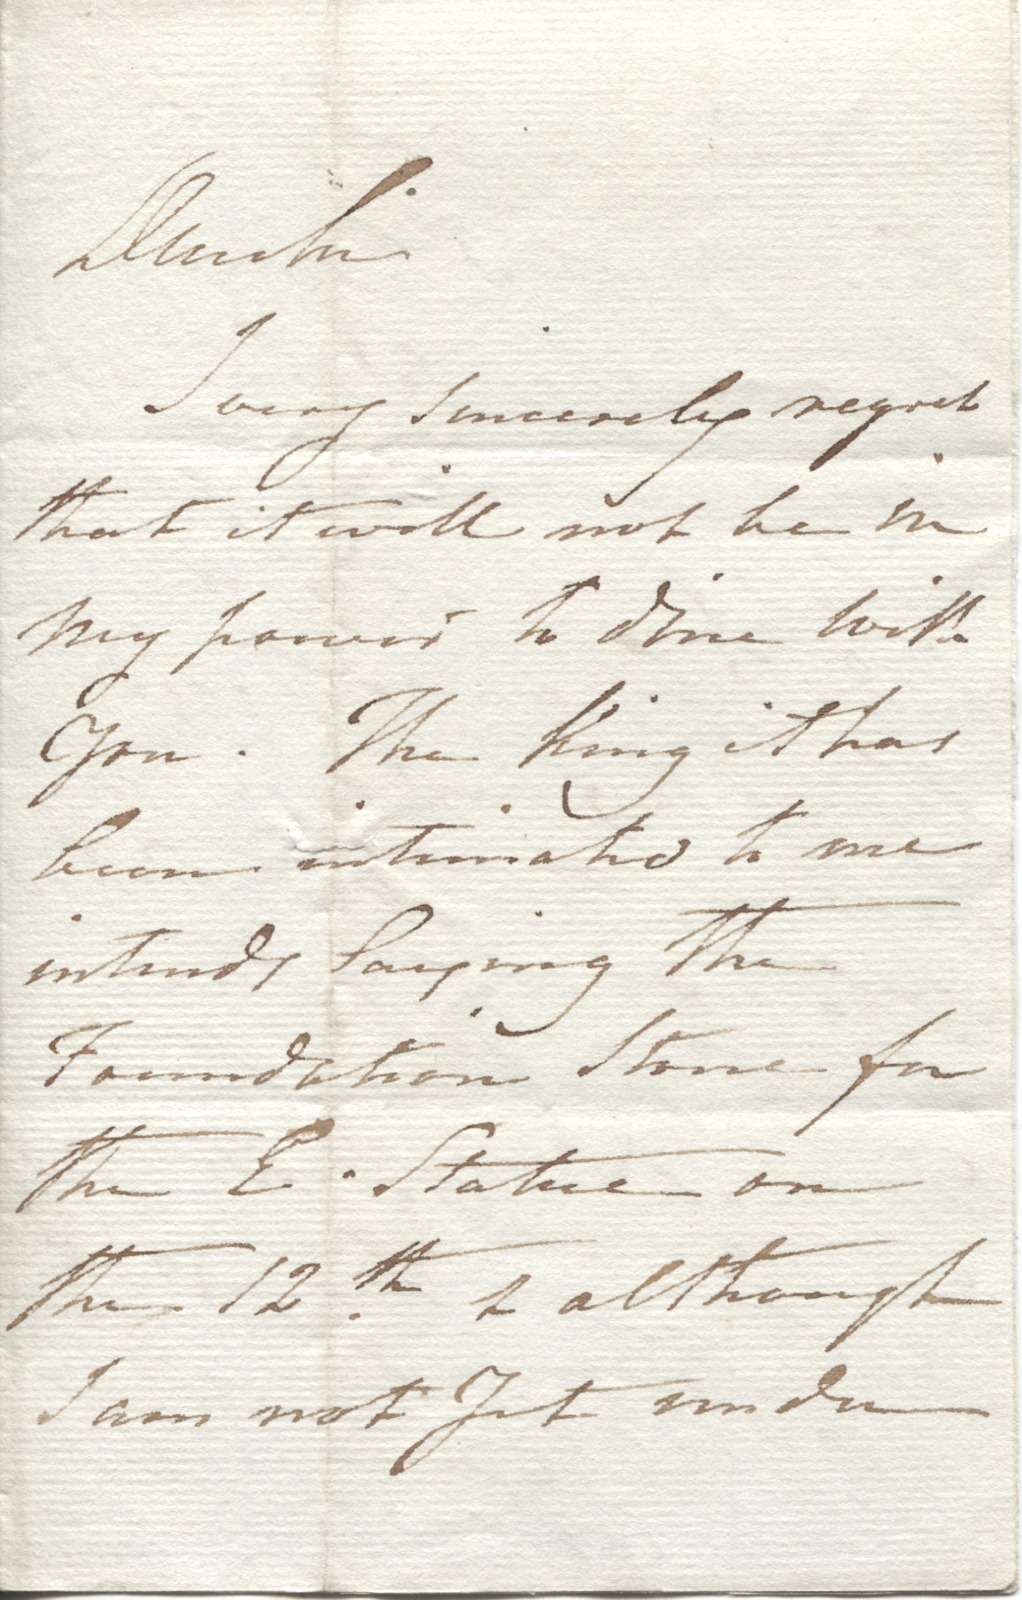 Dear Sir
I very sincerely regret
that it will not be in
my power to dine with
You. The King it has
been intimated to me
intends Laying the
Foundation Stone for
the E. Statue on
the 12th & although
I am not Yet under